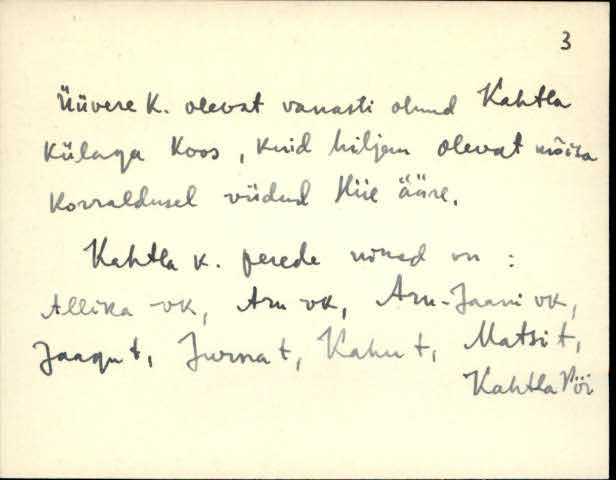 3
Üüvere k. olevat vanasti olnud Kahtla
külaga koos, kuid hiljem olevat mõisa
korraldusel viidud Hiie ääre.
Kahtla k. perede nimed on :
Allika vk, Aru vk, Aru-Jaani vk,
Jaagu t, Jurna t, Kahu t, Matsi t,
Kahtla Pöi